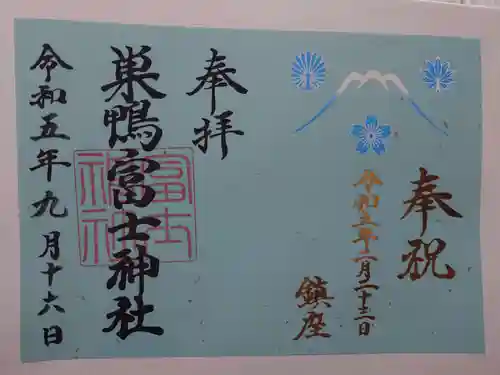 奉祝
令和五年二月二十三日
鎮座
奉拝
巣鴨富士神社
令和五年九月十六日